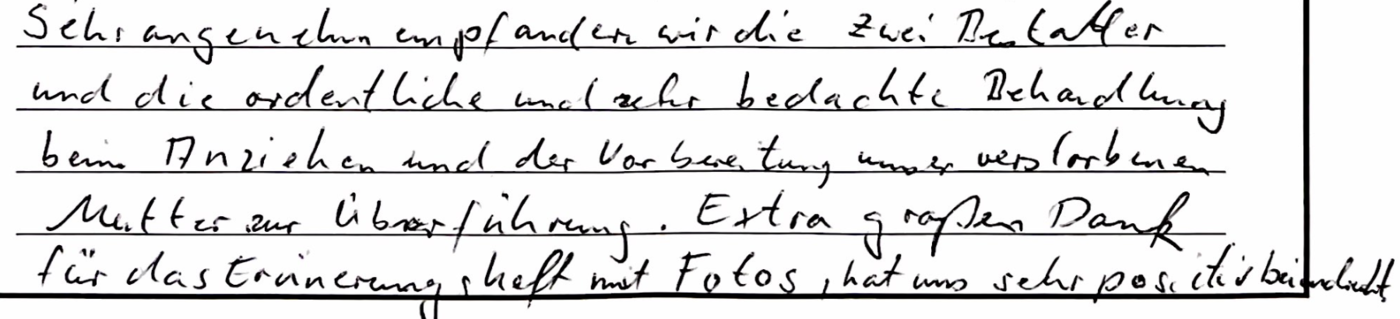 Sehr angenehm empfanden wir die zwei Bestatter
und die ordentliche und sehr bedachte Behandlung
beim Anziehen und der Vorbereitung unser verstorbenen
Mutter zur Überführung. Extra großen Dank
für das Erinnerungsheft mit Fotos, hat uns sehr positiv